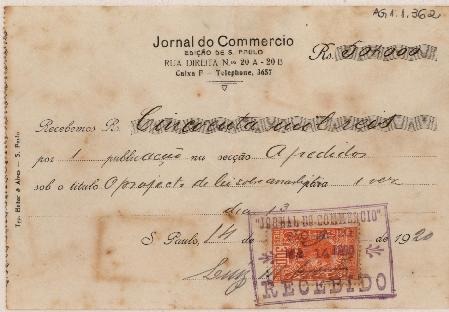 AG1.1.362
Jornal do Commercio
EDIÇÃO DE S. PAULO
RUA DIREITA N.os 20 A - 20 B
Caixa F — Telephone, 3657
Rs. 50$000
Recebemos R. Cincoenta mil reis
por 1 publicação na secção A pedidos
sob o titulo O projecto de lei para 1 vez
dia 13
S. Paulo, 14 de de 1920
"JORNAL DO COMMERCIO"
14 1920
RECEBIDO
Typ. Heitor & Alves — S. Paulo